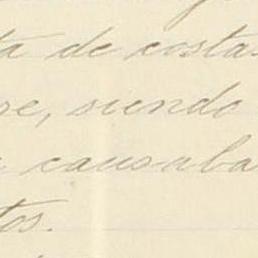 ta de costas
re, siendo
a causaba
tos.